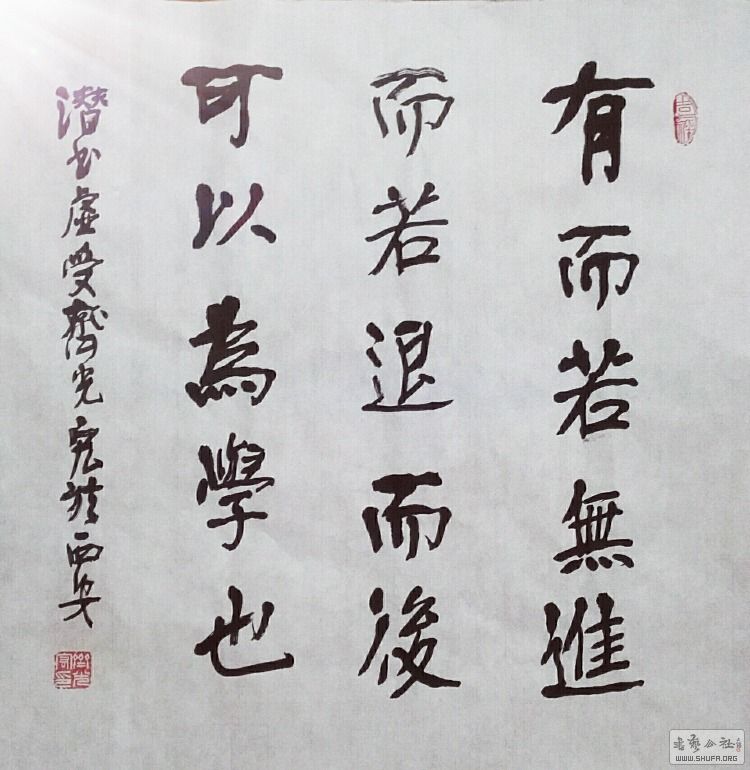 有而若無進
而若退而後
可以為學也
潛書虛受齋光寬於西安
書藝公社
WWW.SHUFA.ORG